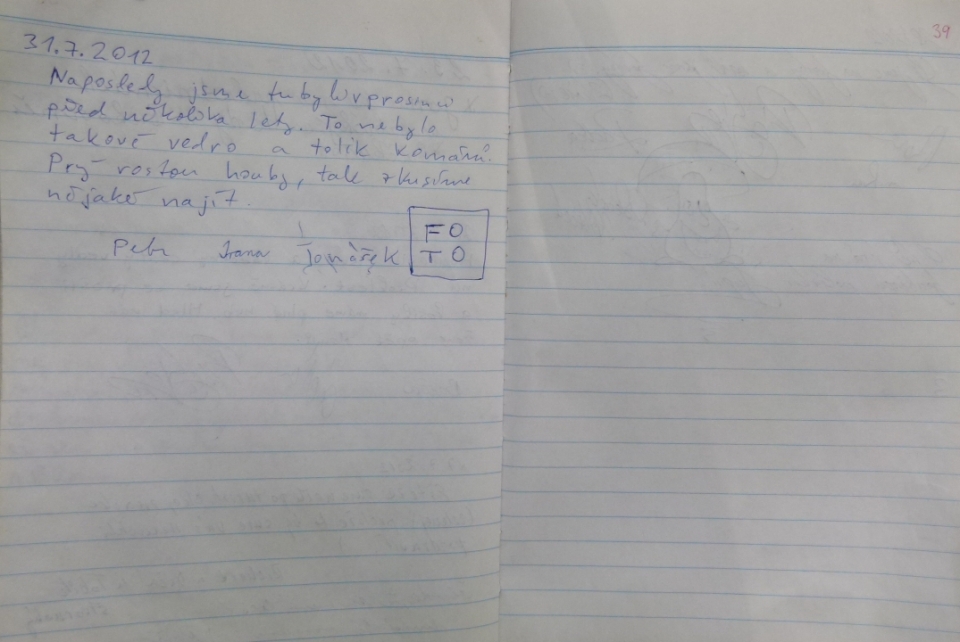 31.7.2012
Naposledy jsme tu byli v prosinci
před několika lety. To nebylo
takové vedro a tolik komárů.
Prý rostou houby, tak zkusíme
nějaké najít.
Petr Ivana Janáček
FO
TO
39